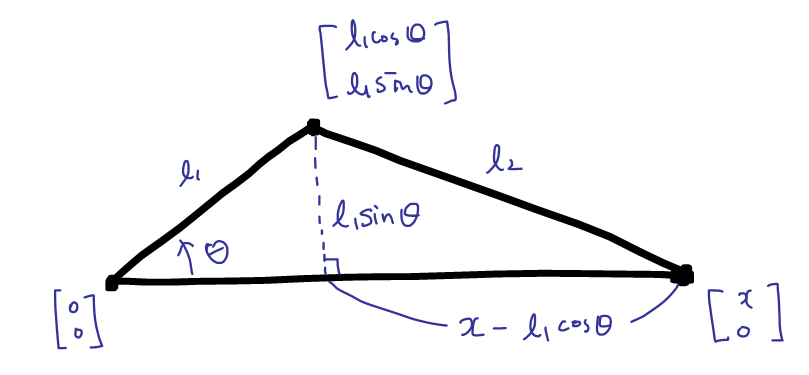 [l₁cosθ
l₁sinθ]
l₁
l₂
l₁sinθ
θ
[0
0]
x - l₁cosθ
[x
0]